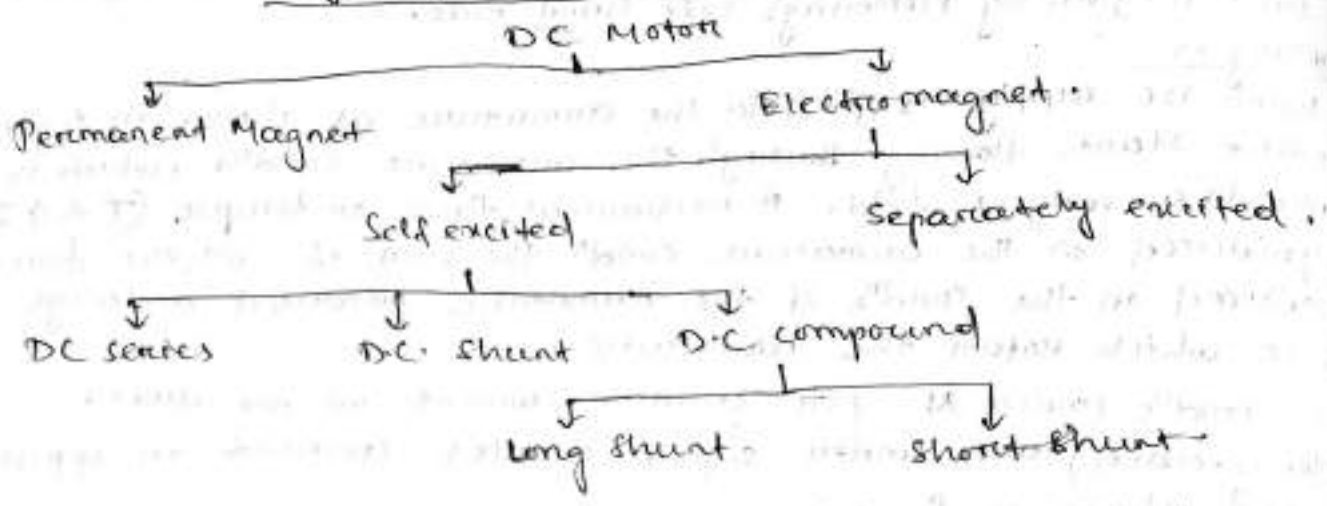 DC Motor
Electromagnet.
Permanent Magnet
Self excited
Separately excited.
DC series
D.C. Shunt
D.C. compound
Long Shunt
Short Shunt.